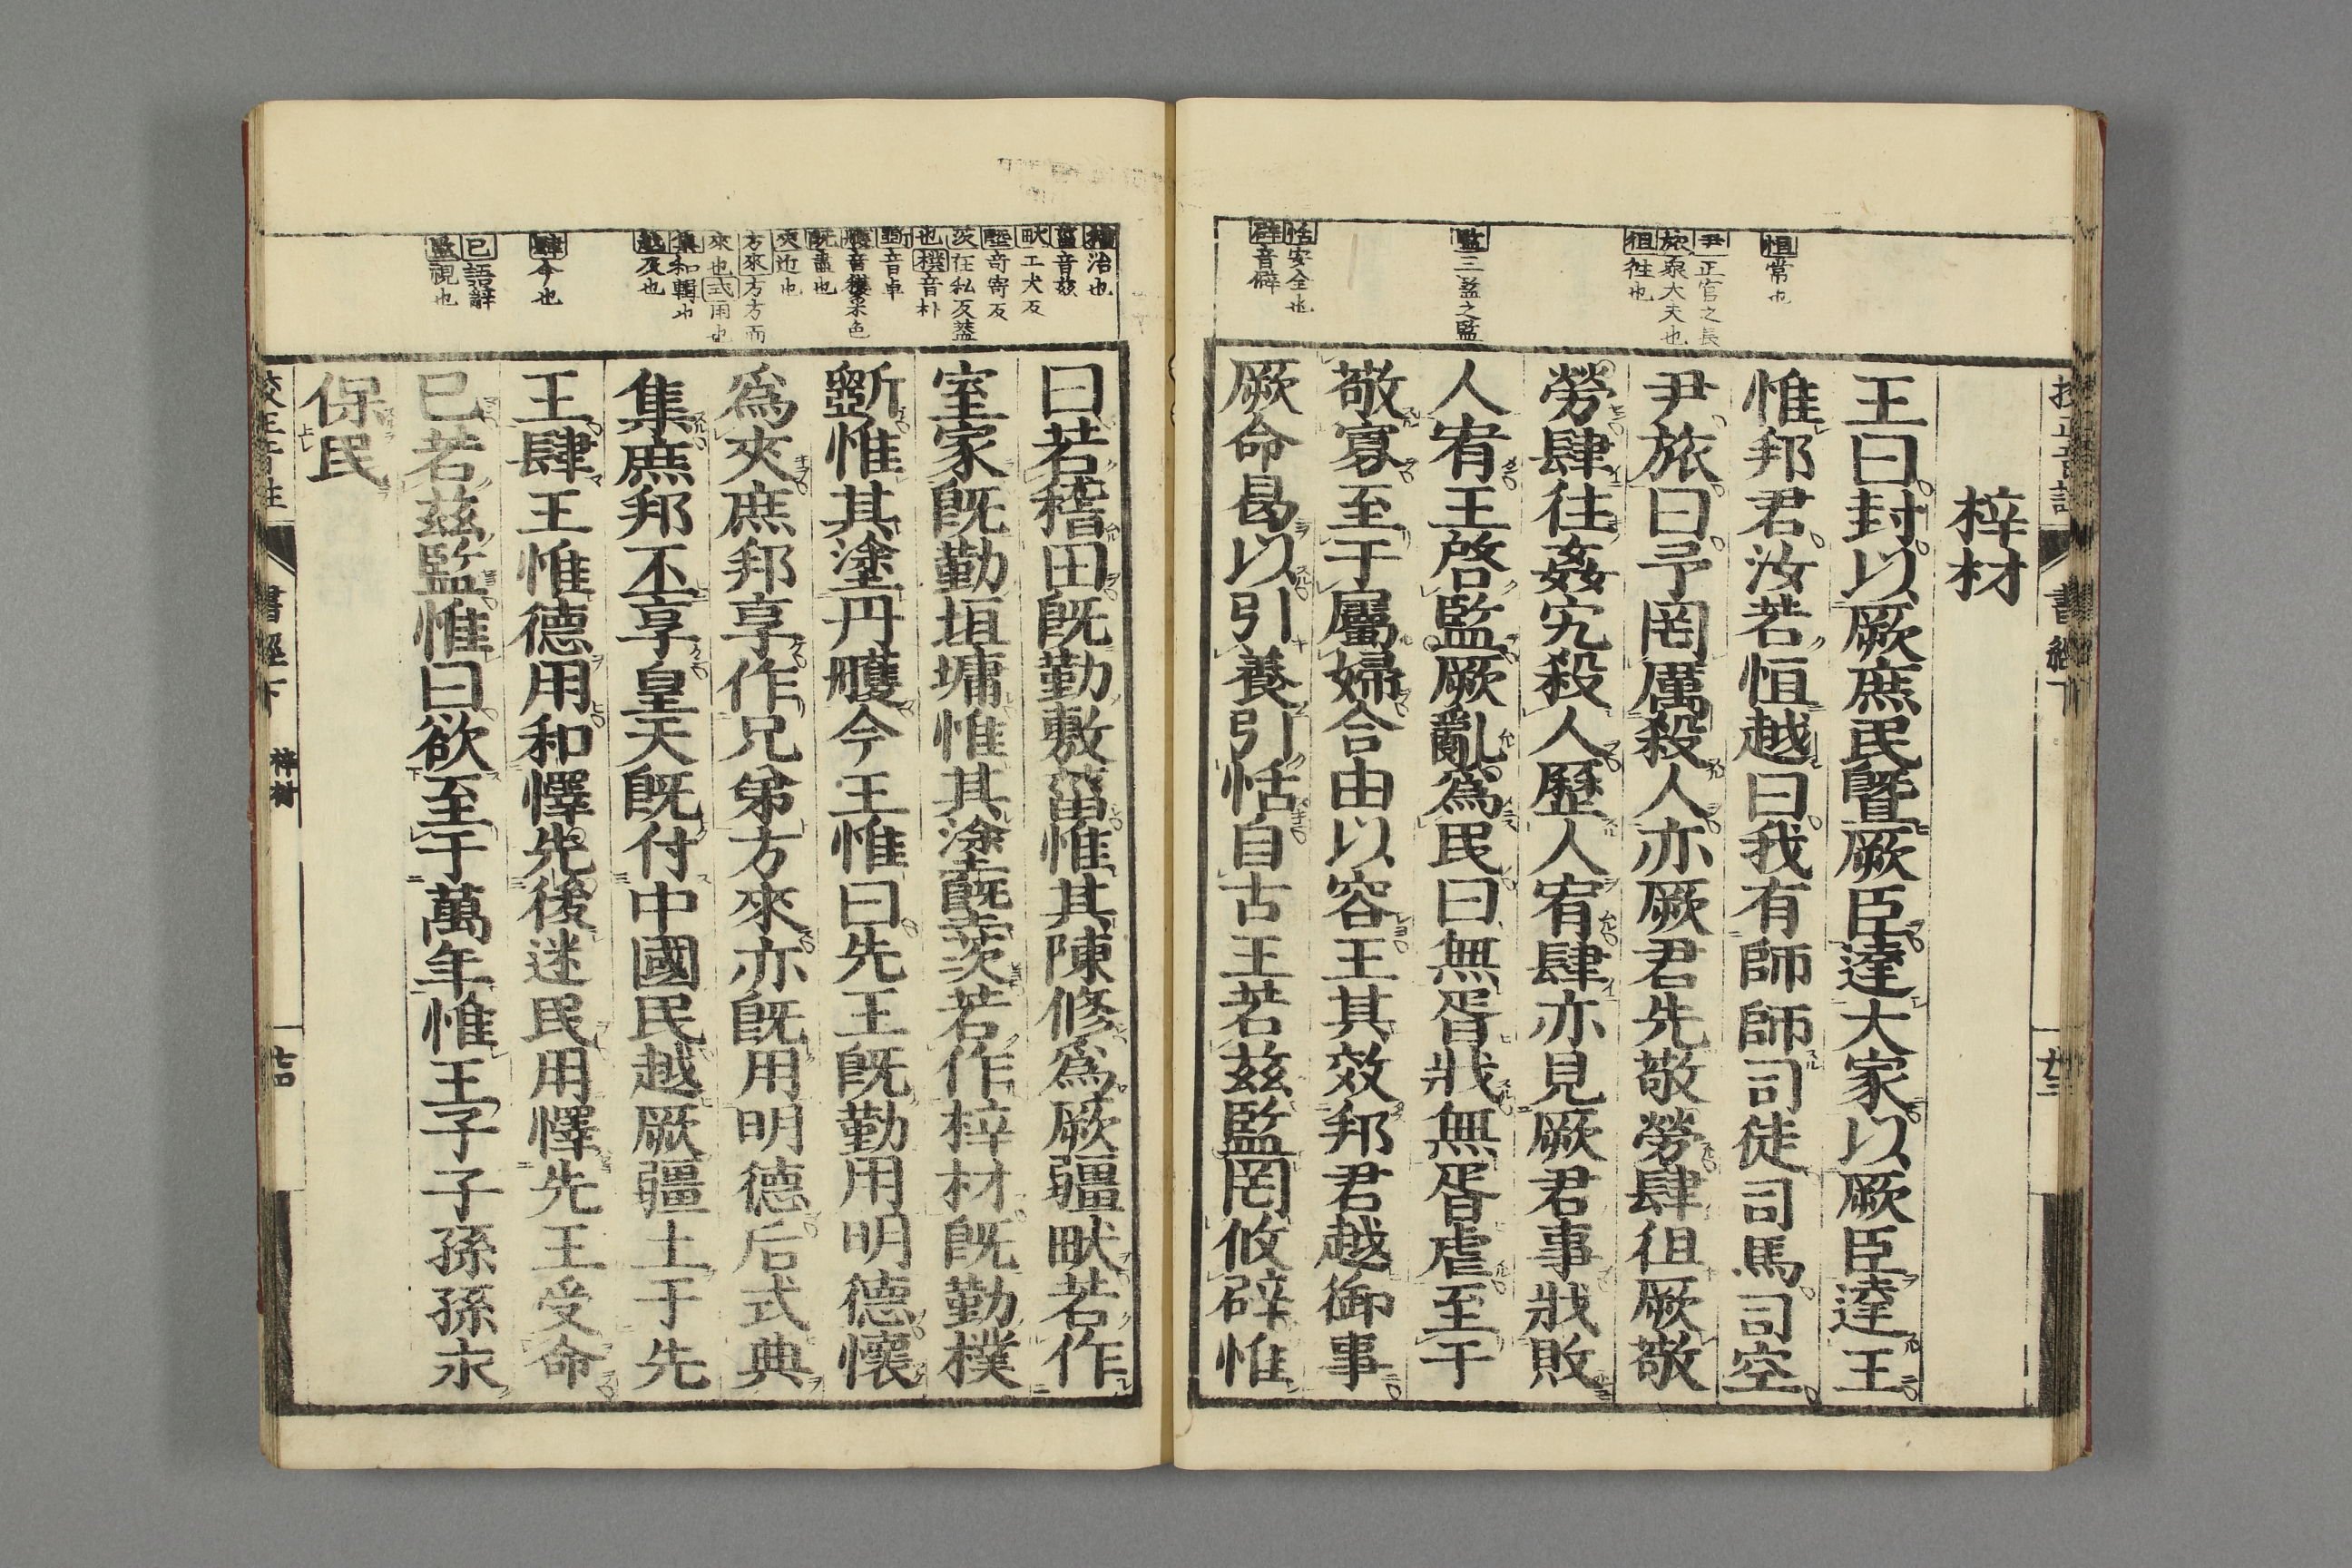 梓材
王曰封以厥庶民曁厥臣達大家以厥臣達王
惟邦君汝若恒越曰我有師師司徒司馬司空
尹旅曰予罔厲殺人亦厥君先敬勞肆徂厥敬
勞肆往姦宄殺人歷人宥肆亦見厥君事戕敗
人宥王啓監厥亂爲民曰無胥戕無胥虐至于
敬寡至于屬婦合由以容王其效邦君越御事
厥命曷以引養引恬自古王若茲監罔攸辟惟
恒常也
尹正官之長
旅衆大夫也
徂往也
監三監之監
恬安全也
辟音僻
曰若稽田既勤敷菑惟其陳修爲厥疆畎若作
室家既勤垣墉惟其塗塈茨若作梓材既勤樸
斲惟其塗丹雘今王惟曰先王既勤用明德懷
爲夾庶邦享作兄弟方來亦既用明德后式典
集庶邦丕享皇天既付中國民越厥疆土于先
王肆王惟德用和懌先後迷民用懌先王受命
已若茲監惟曰欲至于萬年惟王子子孫孫永
保民
稽治也
菑音玆
畎工犬反
塈奇寄反
茨在私反蓋
也樸音朴
斲音卓
雘音穫采色
既盡也
夾近也
方來方方而
來也式用也
集和輯也
越及也
肆今也
已語辭
監視也
書經下
梓材